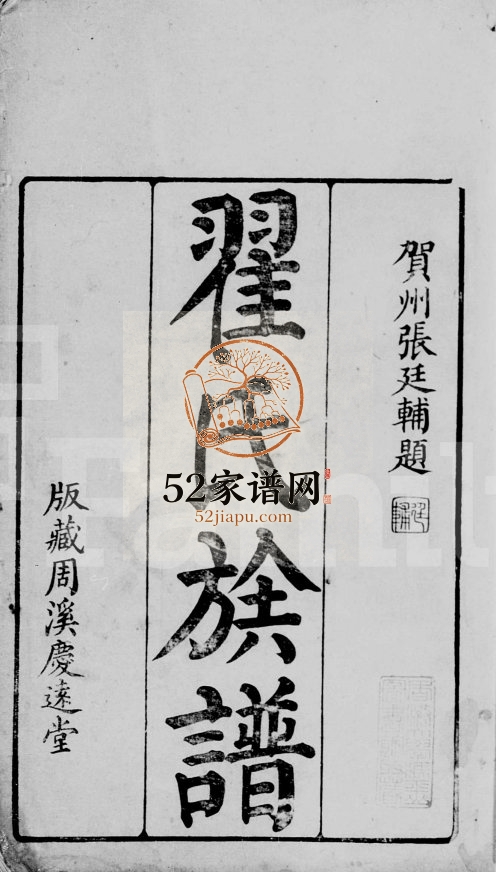 賀州張廷輔題
廷輔
翟氏族譜
版藏周溪慶遠堂
52家谱网
52jiapu.com